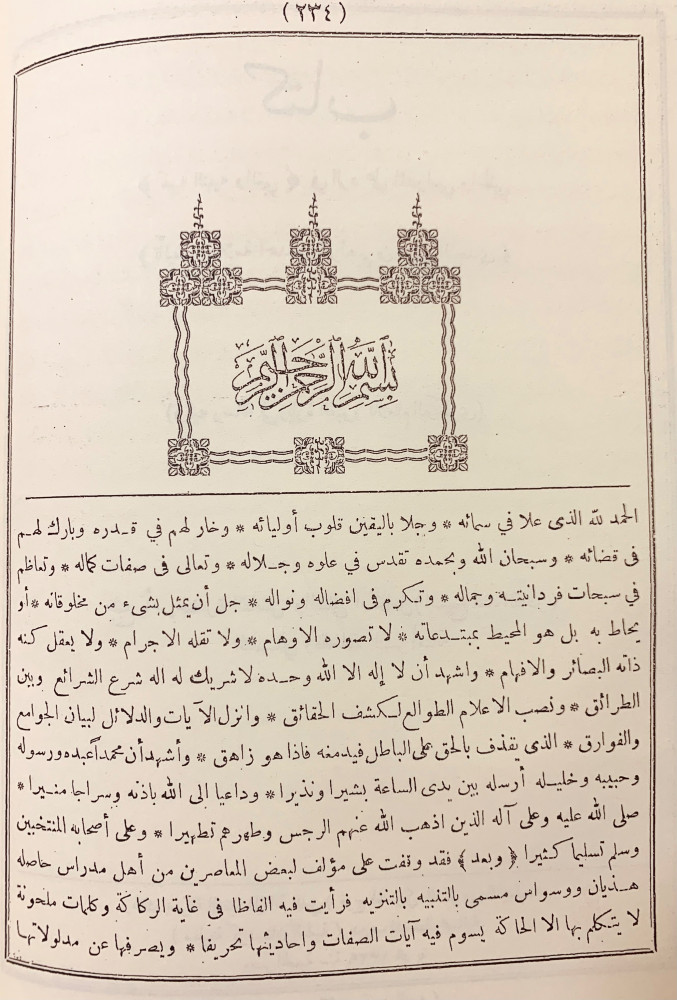 (٢٣٤)
بسم الله الرحمن الرحيم
الحمد لله الذى علا في سمائه * وجلا باليقين قلوب أوليائه * وخار لهم في قدره وبارك لهم
فى قضائه * وسبحان الله وبحمده تقدس في علوه وجلاله * وتعالى فى صفات كماله * وتعاظم
في سبحات فردانيته وجماله * وتكرم فى افضاله ونواله * جل أن يمثل بشىء من مخلوقاته * أو
يحاط به بل هو المحيط بمبتدعاته * لا تصوره الاوهام * ولا تقله الاجرام * ولا يعقل كنه
ذاته البصائر والافهام * واشهد أن لا إله الا الله وحده لا شريك له اله شرع الشرائع وبين
الطرائق * ونصب الاعلام الطوالع لكشف الحقائق * وانزل الآيات والدلائل لبيان الجوامع
والفوارق * الذى يقذف بالحق على الباطل فيدمغه فاذا هو زاهق * وأشهد أن محمداً عبده ورسوله
وحبيبه وخليله أرسله بين يدى الساعة بشيرا ونذيرا * وداعيا الى الله باذنه وسراجا منيرا *
صلى الله عليه وعلى آله الذين اذهب الله عنهم الرجس وطهرهم تطهيرا * وعلى أصحابه المنتخبين
وسلم تسليما كثيرا ﴿ وبعد ﴾ فقد وقفت على مؤلف لبعض المعاصرين من أهل مدراس حاصله
هذيان ووسواس مسمى بالتنبيه بالتنزيه فرأيت فيه الفاظا فى غاية الركاكة وكلمات ملحونة
لا يتكلم بها الا الحاكة يسوم فيه آيات الصفات واحاديثها تحريفا * ويصرفها عن مدلولاتها